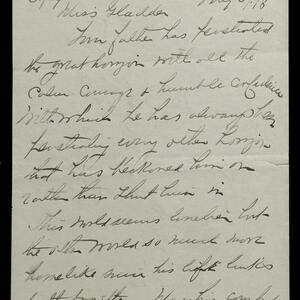 Miss Gladden
Your father has penetrated
the great horizon with all the
calm courage & humble confidence
with which he has always been
penetrating every other horizon
that has beckoned him on
rather than shut him in
This world seems lonelier but
the other world so much more
homelike since his life